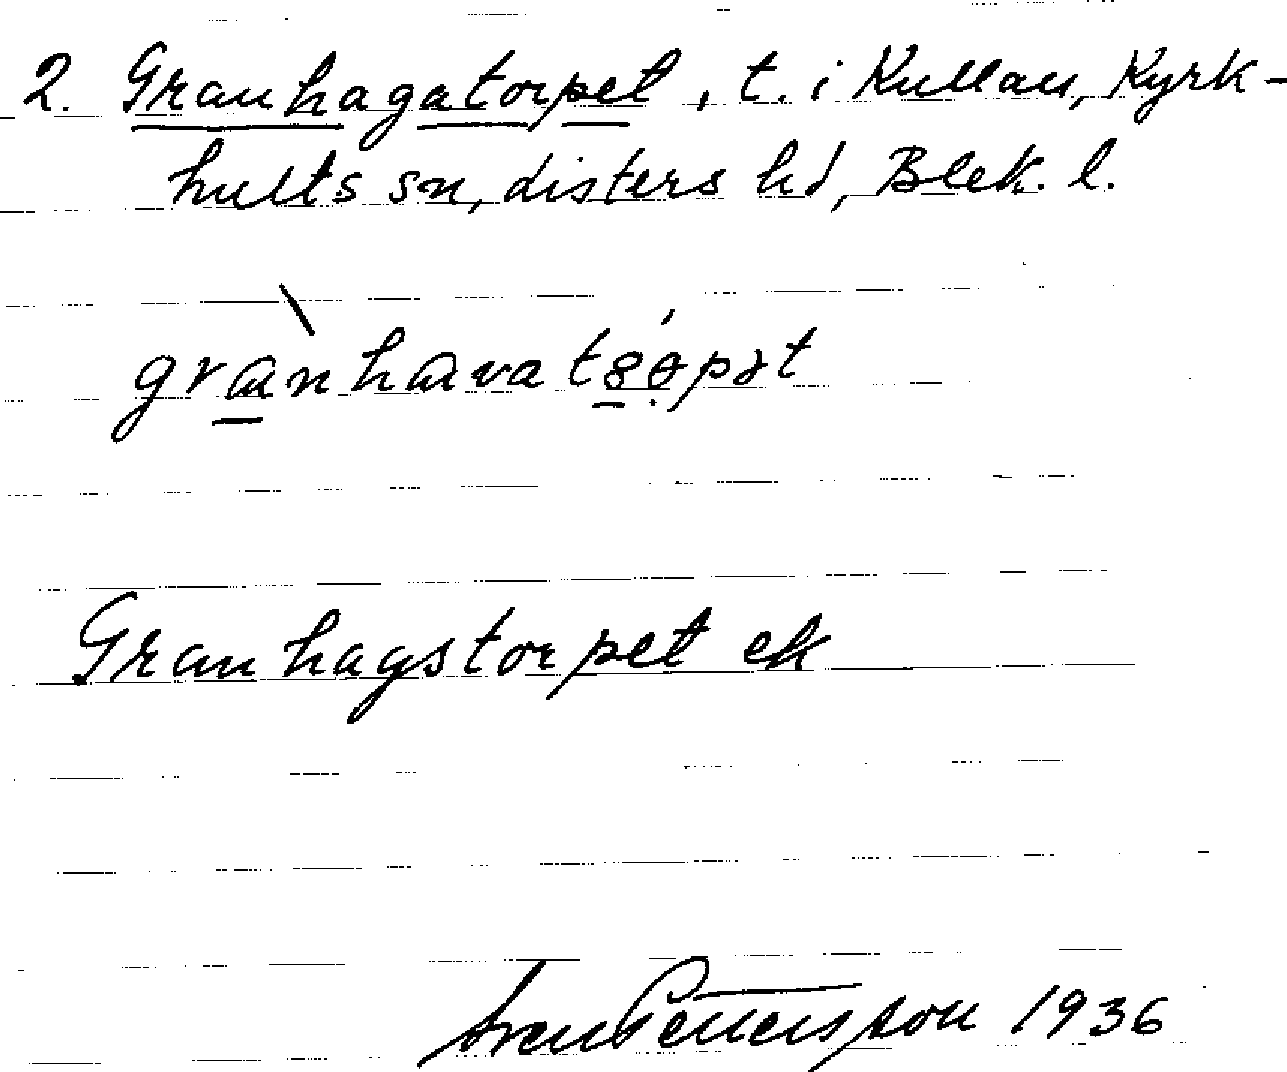 2. Granhagatorpet, t. i Kullan, Kyrk-
hults sn, Listers hd, Blek. l.
Granhagstorpet ek
Sven Pettersson 1936